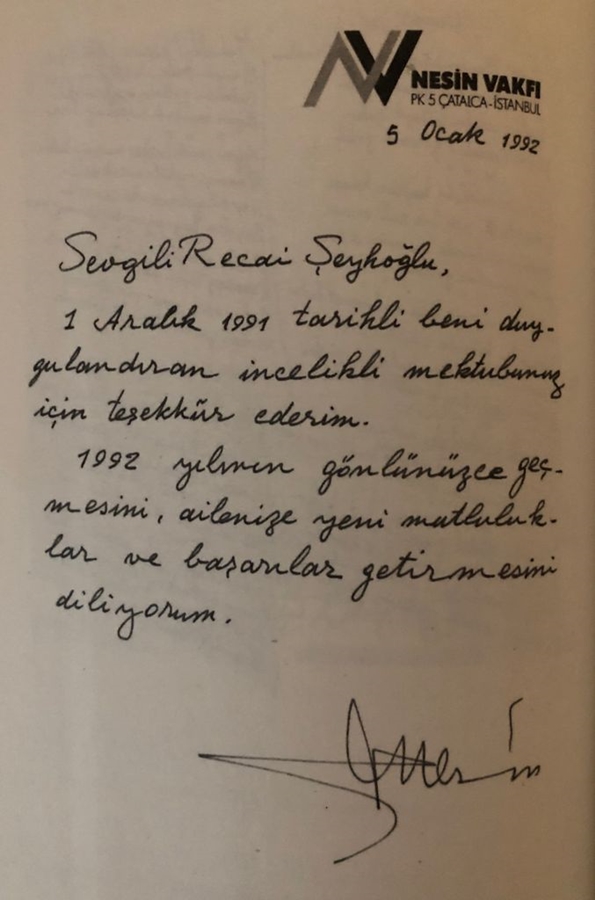 NESİN VAKFI
PK 5 ÇATALCA-İSTANBUL
5 Ocak 1992
Sevgili Recai Şeyhoğlu,
1 Aralık 1991 tarihli beni duy-
gulandıran incelikli mektubunuz
için teşekkür ederim.
1992 yılının gönlünüzce geç-
mesini, ailenize yeni mutluluk-
lar ve başarılar getirmesini
diliyorum.